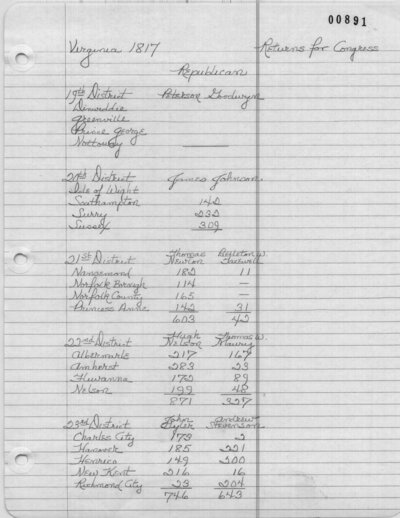 00891
Virginia 1817 Returns for Congress
Republican
19th District Peterson Goodwyn
Dinwiddie
Greenville
Prince George
Nottoway —
District James Johnson
Isle of Wight
Southampton 142
Surry 232
Sussex 309
21st District Thomas Newton
Nansemond 182 11
Norfolk Borough 114 —
Norfolk County 165 —
Princess Anne 142 31
603 42
22nd District Hugh Nelson Thomas W. Maury
Albermarle 217 167
Amherst 283 23
Fluvanna 172 89
Nelson 199 48
871 327
23rd District John Tyler Andrew Stevenson
Charles City 173 2
Hanover 185 221
Henrico 149 200
New Kent 216 16
Richmond City 23 204
746 643